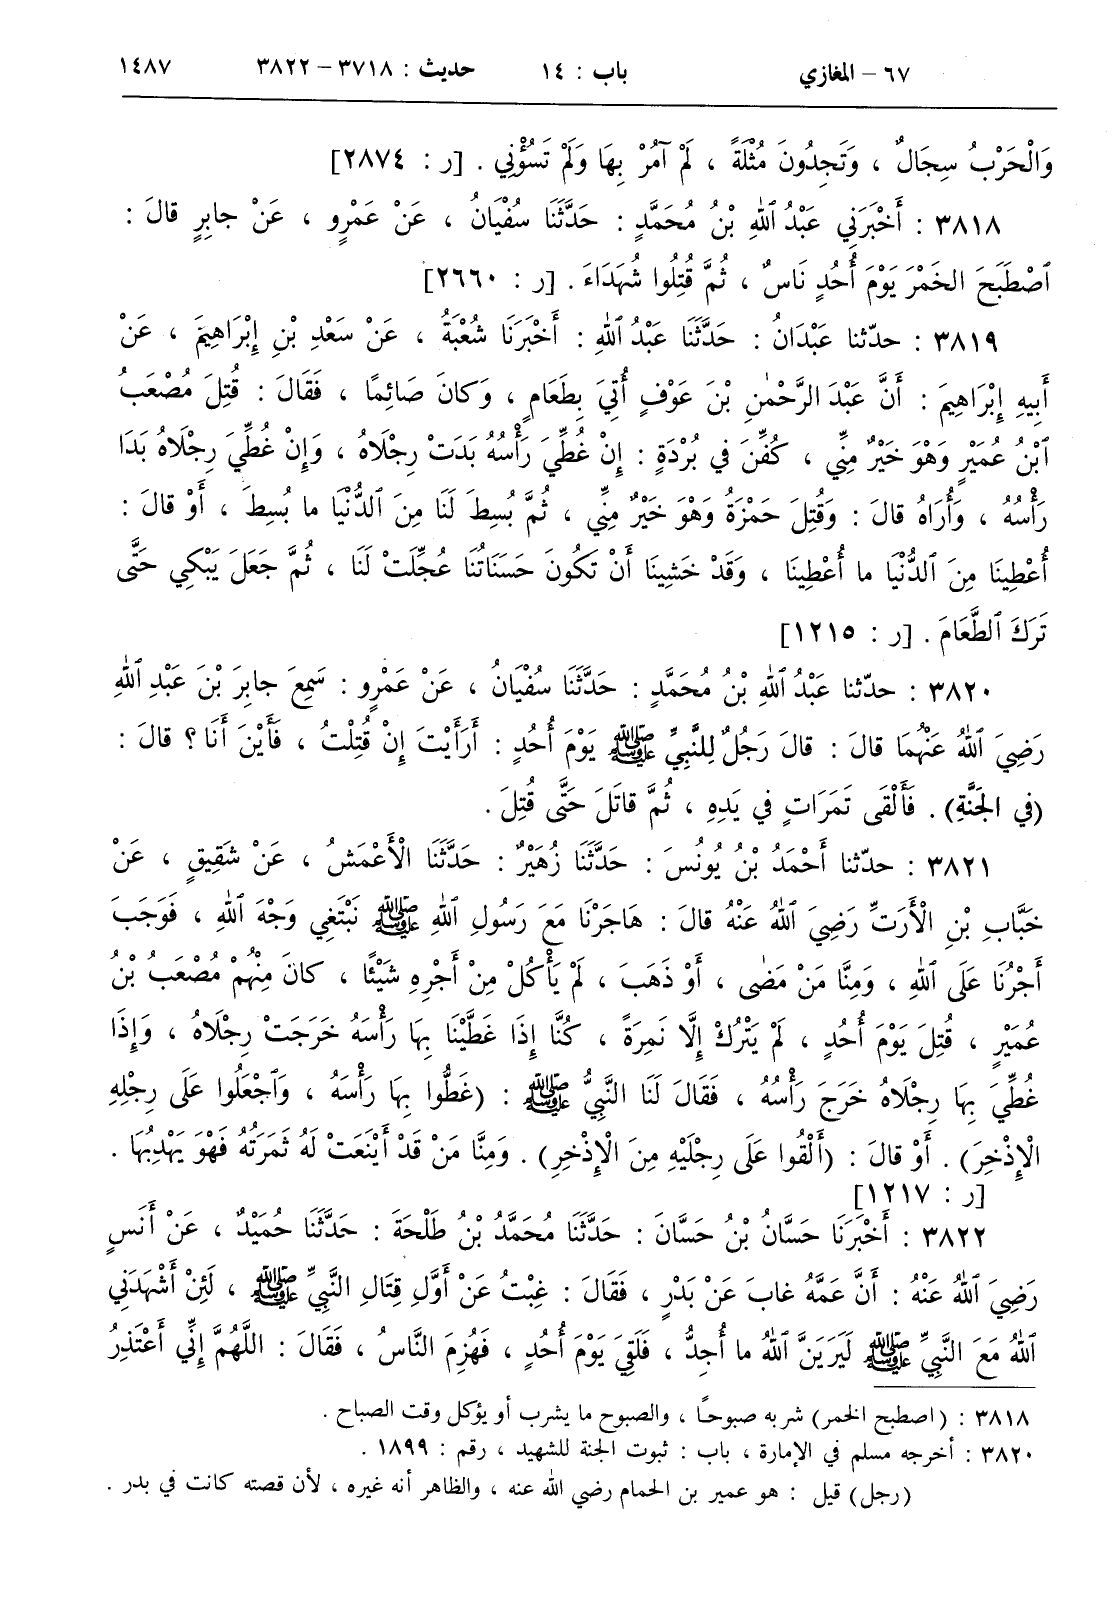 ٦٧ – المغازي باب : ١٤ حديث : ٣٧١٨ – ٣٨٢٢ ١٤٨٧
وَالْحَرْبُ سِجَالٌ ، وَتَجِدُونَ مُثْلَةً ، لَمْ آمُرْ بِهَا وَلَمْ تَسُؤْنِي . [ر : ٢٨٧٤]
٣٨١٨ : أَخْبَرَنِي عَبْدُ ٱللهِ بْنُ مُحَمَّدٍ : حَدَّثَنَا سُفْيَانُ ، عَنْ عَمْرٍو ، عَنْ جابِرٍ قالَ :
ٱصْطَبَحَ الخَمْرَ يَوْمَ أُحُدٍ نَاسٌ ، ثُمَّ قُتِلُوا شُهَدَاءَ . [ر : ٢٦٦٠]
٣٨١٩ : حدّثنا عَبْدَانُ : حَدَّثَنَا عَبْدُ ٱللهِ : أَخْبَرَنَا شُعْبَةُ ، عَنْ سَعْدِ بْنِ إِبْرَاهِيمَ ، عَنْ
أَبِيهِ إِبْرَاهِيمَ : أَنَّ عَبْدَ الرَّحْمٰنِ بْنَ عَوْفٍ أُتِيَ بِطَعَامٍ ، وَكانَ صَائِمًا ، فَقَالَ : قُتِلَ مُصْعَبُ
ٱبْنُ عُمَيْرٍ وَهْوَ خَيْرٌ مِنِّي ، كُفِّنَ في بُرْدَةٍ : إِنْ غُطِّيَ رَأْسُهُ بَدَتْ رِجْلَاهُ ، وَإِنْ غُطِّيَ رِجْلَاهُ بَدَا
رَأْسُهُ ، وَأُرَاهُ قالَ : وَقُتِلَ حَمْزَةُ وَهْوَ خَيْرٌ مِنِّي ، ثُمَّ بُسِطَ لَنَا مِنَ ٱلدُّنْيَا ما بُسِطَ ، أَوْ قالَ :
أُعْطِينَا مِنَ ٱلدُّنْيَا ما أُعْطِينَا ، وَقَدْ خَشِينَا أَنْ تَكُونَ حَسَنَاتُنَا عُجِّلَتْ لَنَا ، ثُمَّ جَعَلَ يَبْكِي حَتَّى
تَرَكَ ٱلطَّعَامَ . [ر : ١٢١٥]
٣٨٢٠ : حدّثنا عَبْدُ ٱللهِ بْنُ مُحَمَّدٍ : حَدَّثَنَا سُفْيَانُ ، عَنْ عَمْرٍو : سَمِعَ جابِرَ بْنَ عَبْدِ ٱللهِ
رَضِيَ ٱللهُ عَنْهُمَا قالَ : قالَ رَجُلٌ لِلنَّبِيِّ ﷺ يَوْمَ أُحُدٍ : أَرَأَيْتَ إِنْ قُتِلْتُ ، فَأَيْنَ أَنَا ؟ قالَ :
(في الجَنَّةِ) . فَأَلْقَى تَمَرَاتٍ في يَدِهِ ، ثُمَّ قاتَلَ حَتَّى قُتِلَ .
٣٨٢١ : حدّثنا أَحْمَدُ بْنُ يُونُسَ : حَدَّثَنَا زُهَيْرٌ : حَدَّثَنَا الْأَعْمَشُ ، عَنْ شَقِيقٍ ، عَنْ
خَبَّابِ بْنِ الْأَرَتِّ رَضِيَ ٱللهُ عَنْهُ قالَ : هَاجَرْنَا مَعَ رَسُولِ ٱللهِ ﷺ نَبْتَغِي وَجْهَ ٱللهِ ، فَوَجَبَ
أَجْرُنَا عَلَى ٱللهِ ، وَمِنَّا مَنْ مَضٰى ، أَوْ ذَهَبَ ، لَمْ يَأْكُلْ مِنْ أَجْرِهِ شَيْئًا ، كانَ مِنْهُمْ مُصْعَبُ بْنُ
عُمَيْرٍ ، قُتِلَ يَوْمَ أُحُدٍ ، لَمْ يَتْرُكْ إِلَّا نَمِرَةً ، كُنَّا إِذَا غَطَّيْنَا بِهَا رَأْسَهُ خَرَجَتْ رِجْلَاهُ ، وَإِذَا
غُطِّيَ بِهَا رِجْلَاهُ خَرَجَ رَأْسُهُ ، فَقَالَ لَنَا النَّبِيُّ ﷺ : (غَطُّوا بِهَا رَأْسَهُ ، وَٱجْعَلُوا عَلَى رِجْلِهِ
الْإِذْخِرَ) . أَوْ قالَ : (أَلْقُوا عَلَى رِجْلَيْهِ مِنَ الْإِذْخِرِ) . وَمِنَّا مَنْ قَدْ أَيْنَعَتْ لَهُ ثَمَرَتُهُ فَهْوَ يَهْدِبُهَا .
[ر : ١٢١٧]
٣٨٢٢ : أَخْبَرَنَا حَسَّانُ بْنُ حَسَّانَ : حَدَّثَنَا مُحَمَّدُ بْنُ طَلْحَةَ : حَدَّثَنَا حُمَيْدٌ ، عَنْ أَنَسٍ
رَضِيَ ٱللهُ عَنْهُ : أَنَّ عَمَّهُ غابَ عَنْ بَدْرٍ ، فَقَالَ : غِبْتُ عَنْ أَوَّلِ قِتَالِ النَّبِيِّ ﷺ ، لَئِنْ أَشْهَدَنِي
ٱللهُ مَعَ النَّبِيِّ ﷺ لَيَرَيَنَّ ٱللهُ ما أُجِدُّ ، فَلَقِيَ يَوْمَ أُحُدٍ ، فَهُزِمَ النَّاسُ ، فَقَالَ : اللَّهُمَّ إِنِّي أَعْتَذِرُ
٣٨١٨ : (اصطبح الخمر) شربه صبوحًا ، والصبوح ما يشرب أو يؤكل وقت الصباح .
٣٨٢٠ : أخرجه مسلم في الإمارة ، باب : ثبوت الجنة للشهيد ، رقم : ١٨٩٩ .
(رجل) قيل : هو عمير بن الحمام رضي الله عنه ، والظاهر أنه غيره ، لأن قصته كانت في بدر .